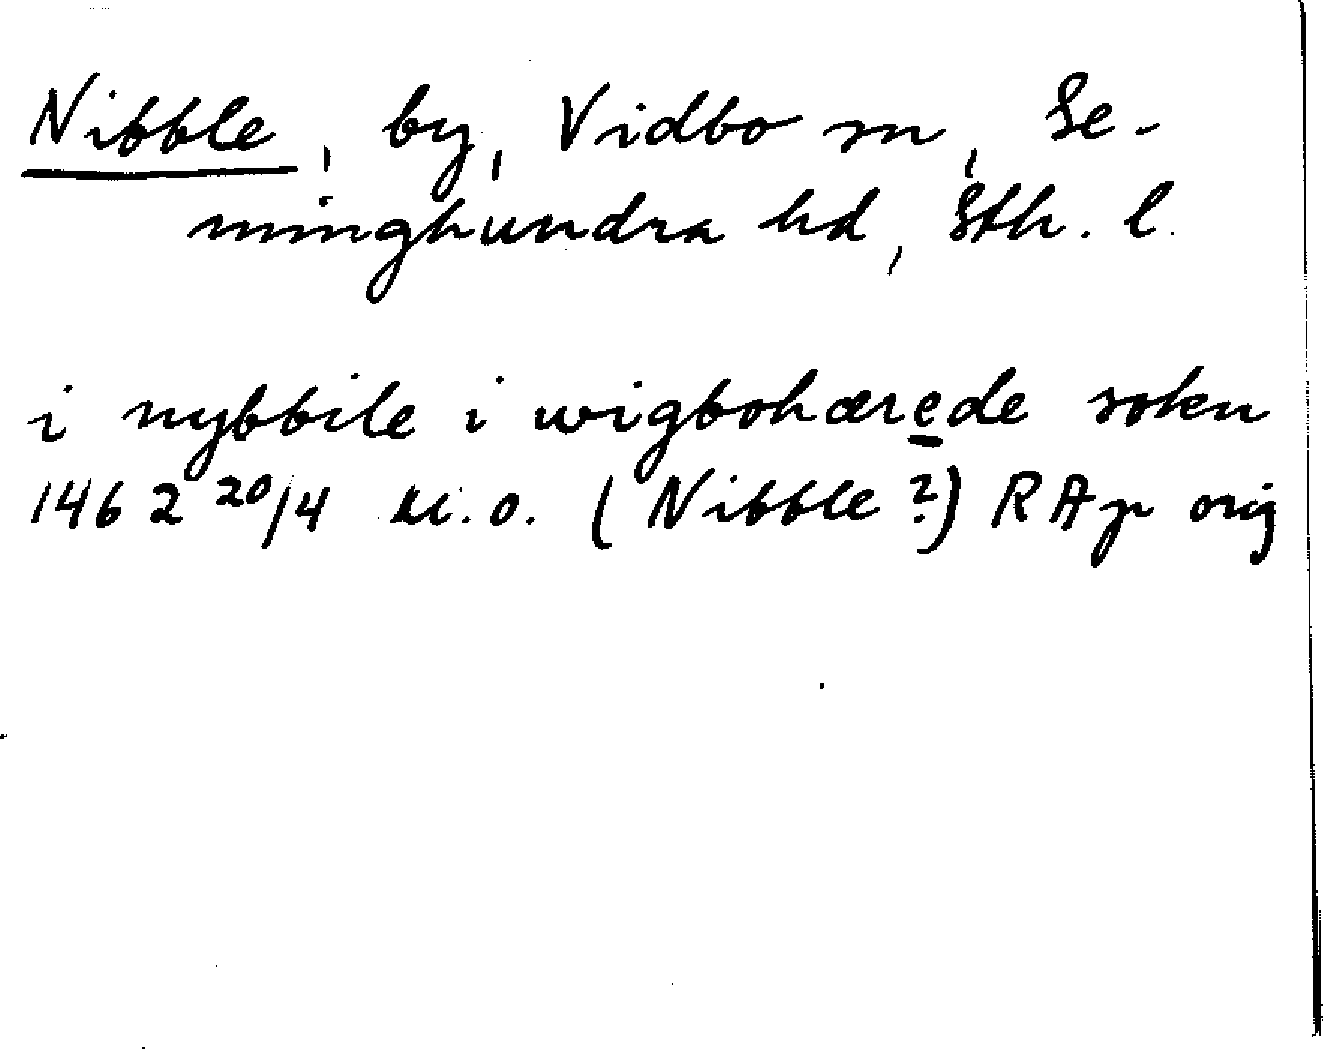 Nibble, by, Vidbo sn, Se-
minghundra hd, Sth. l.
i nybbile i wigbohærede sokn
1462 20/4 u.o. (Nibble?) RAp orig